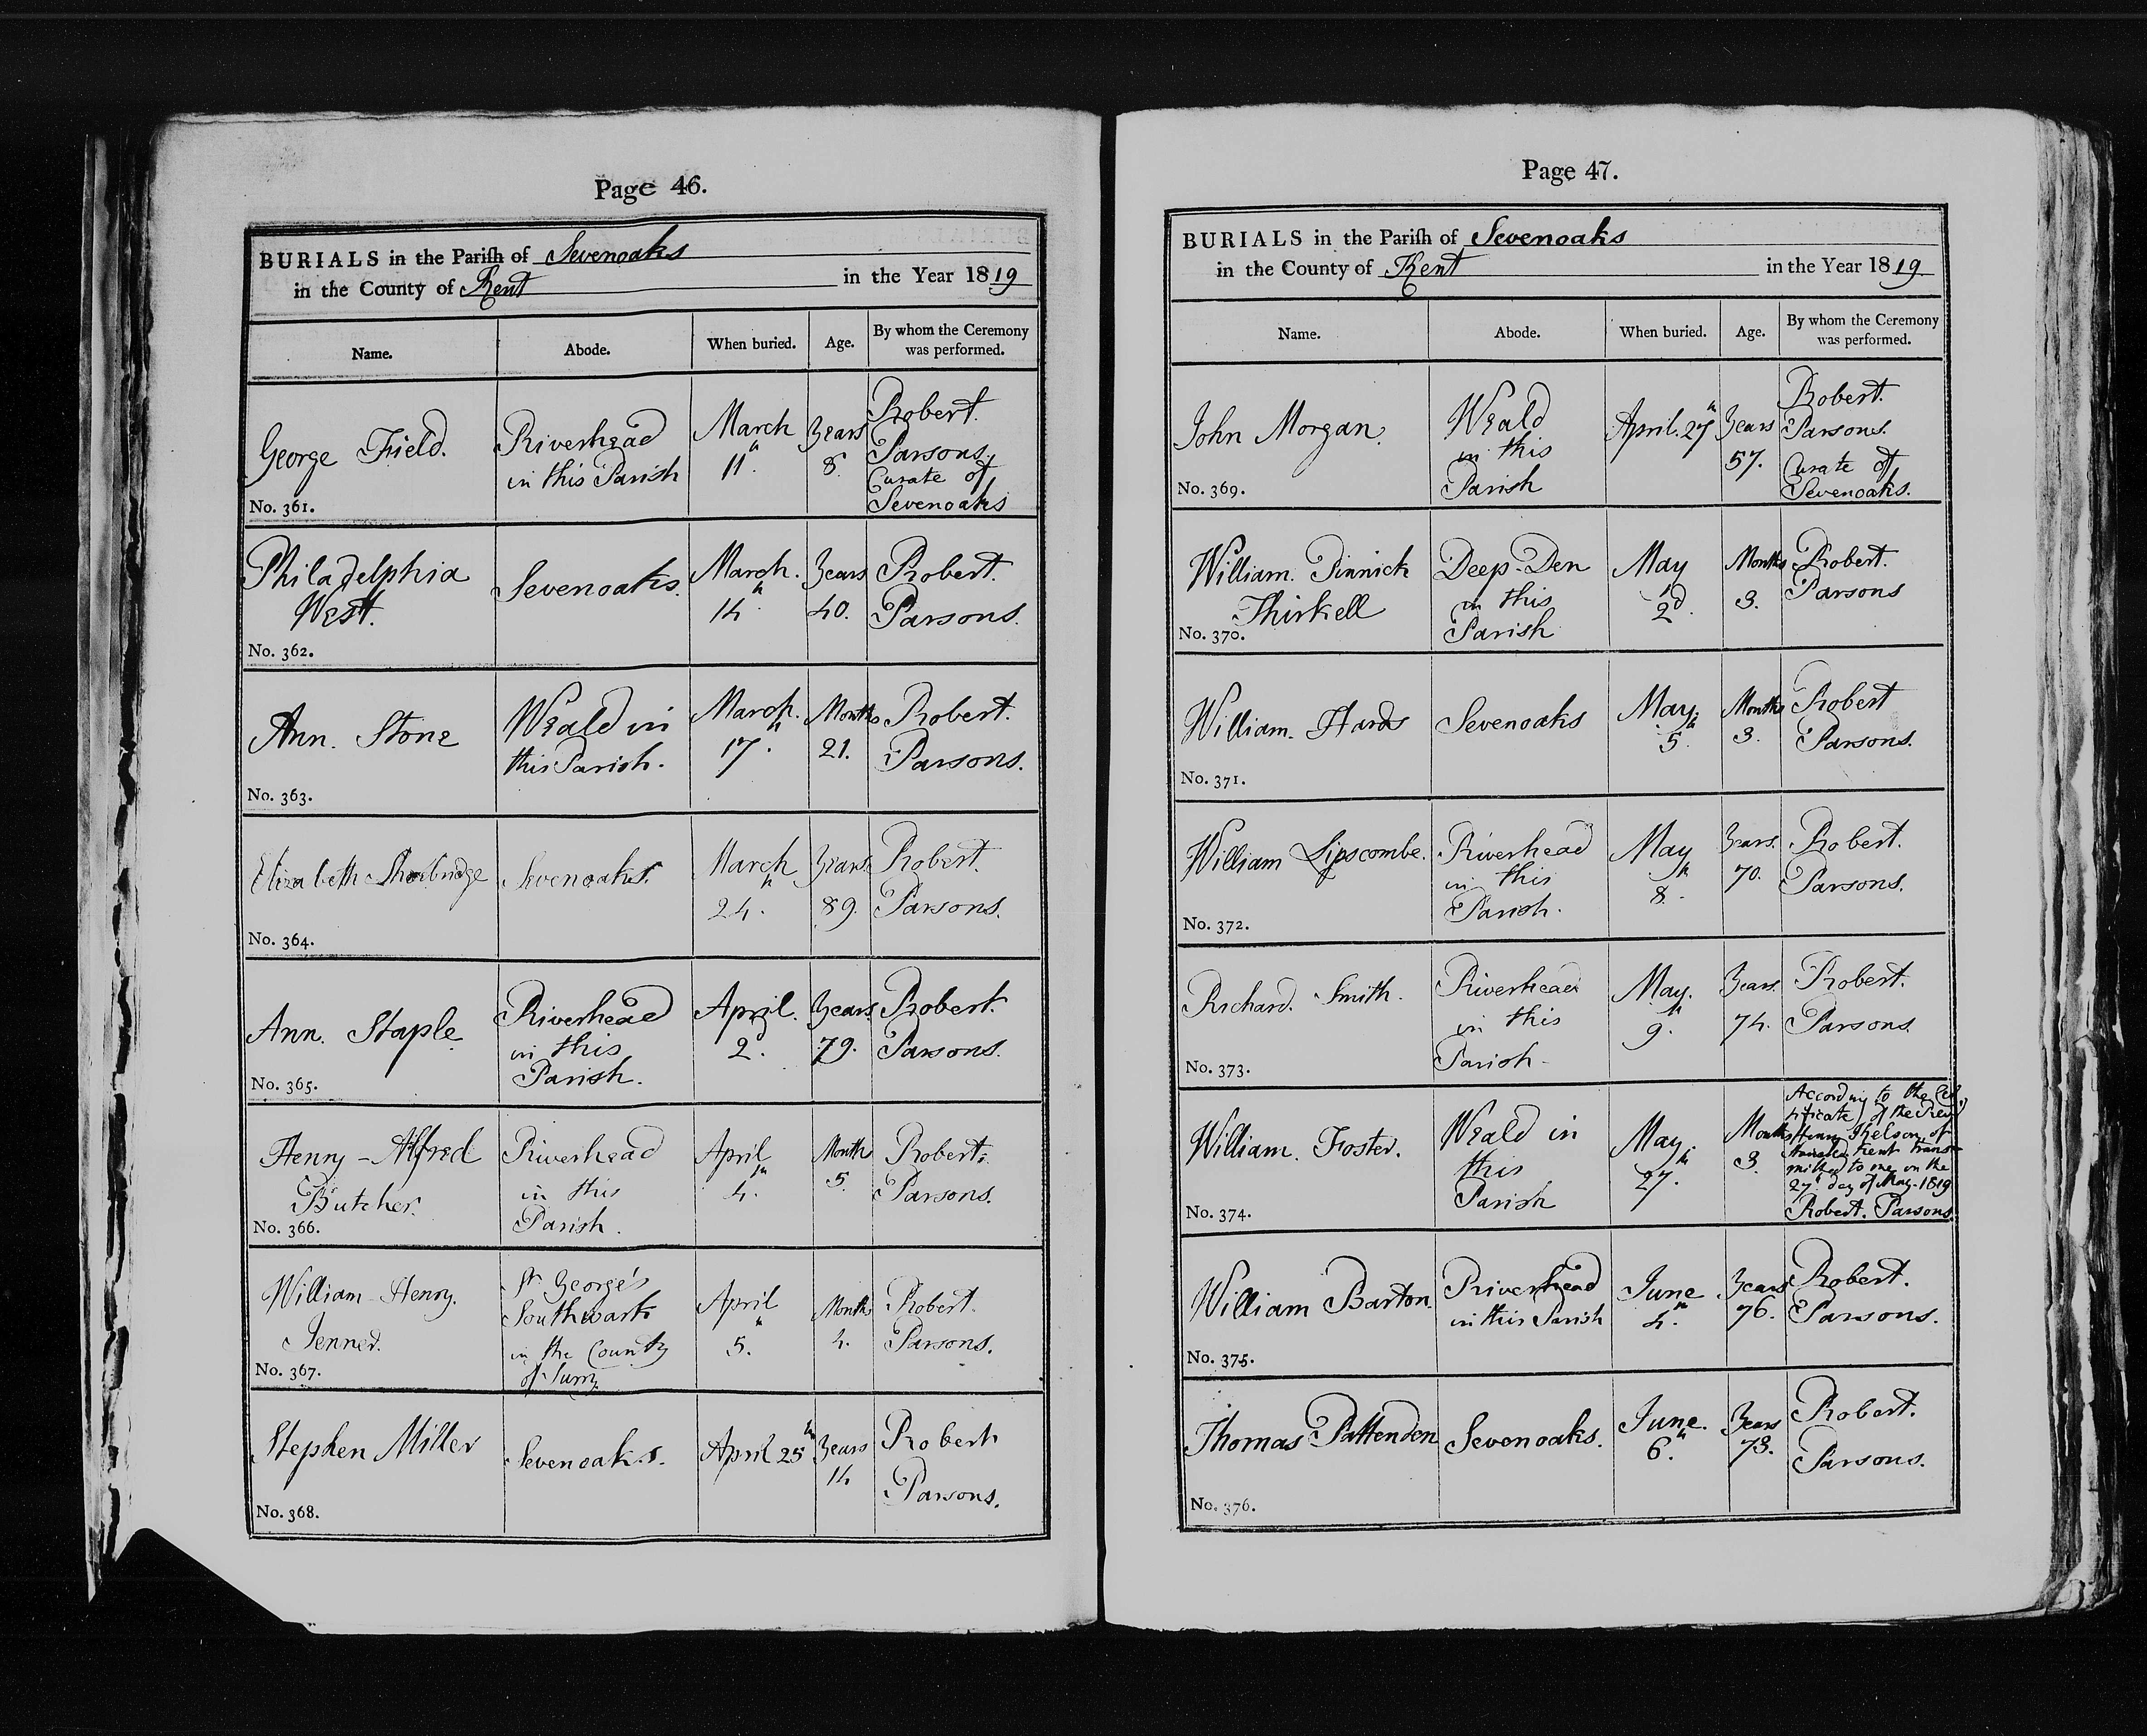 Page 46.
BURIALS in the Pariſh of Sevenoaks
in the County of Kent in the Year 1819
Name. Abode. When buried. Age. By whom the Ceremony was performed.
George Field. Riverhead March Years Robert.
in this Parish 11th. 8. Parsons.
Curate of
No. 361. Sevenoaks
Philadelphia Sevenoaks. March. Years Robert.
West. 14th. 40. Parsons.
No. 362.
Ann. Stone Weald in March. Months Robert.
this Parish. 17th. 21. Parsons.
No. 363.
Elizabeth Sevenoaks. March Years Robert.
24th. 89. Parsons.
No. 364.
Ann. Staple Riverhead April. Years Robert.
in this 2d. 79. Parsons.
Parish.
No. 365.
Henry - Alfred Riverhead April Months Robert.
Butcher. in this 4th. 5. Parsons.
Parish.
No. 366.
William Henry. St. George's April Months Robert.
Jenner. Southwark 5th. 4. Parsons.
in the County
No. 367. of Surry.
Stephen Miller Sevenoaks. April 25th Years Robert
14 Parsons.
No. 368.
Page 47.
BURIALS in the Pariſh of Sevenoaks
in the County of Kent in the Year 1819
Name. Abode. When buried. Age. By whom the Ceremony was performed.
John Morgan. Weald April. 27th Years Robert.
in this 57. Parsons.
Parish Curate of
No. 369. Sevenoaks.
William. Pinnick Deep-Den May Months Robert.
Thirkell in this 2d. 3. Parsons
No. 370. Parish
William. Hards Sevenoaks May. Months Robert
5th. 3. Parsons.
No. 371.
William Lipscombe. Riverhead May Years. Robert.
in this 8th. 70. Parsons.
No. 372. Parish.
Richard. Smith. Riverhead May. Years. Robert.
in this 9th. 74. Parsons.
No. 373. Parish-
William. Foster. Weald in May. Months According to the Cer
this 27th. 3. tificate of the Revd
Parish Henry of
Kent trans-
mitted to me on the
27th day of May-1819
No. 374. Robert. Parsons.
William Barton. Riverhead June Years Robert.
in this Parish 4th. 76. Parsons.
No. 375.
Thomas Pattenden Sevenoaks. June. Years Robert.
6th. 73. Parsons.
No. 376.